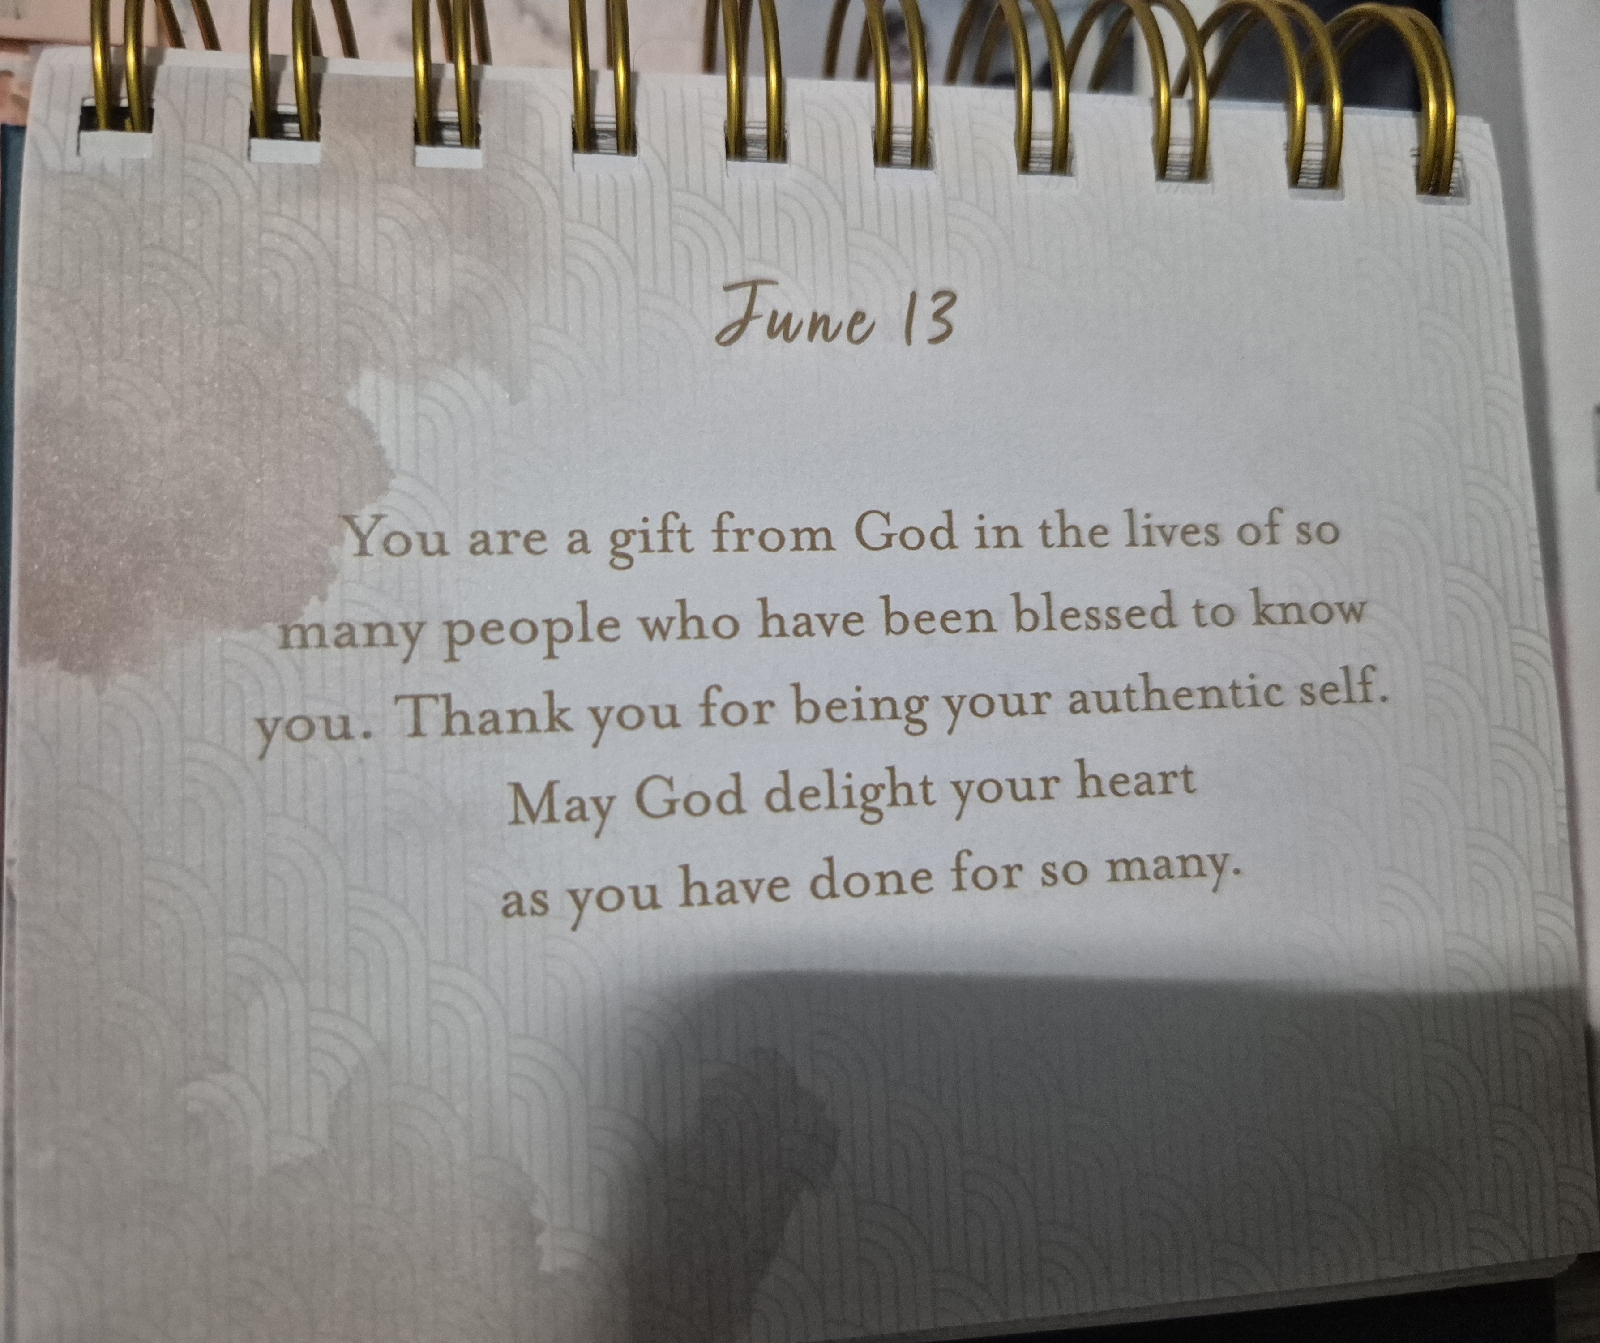 June 13
You are a gift from God in the lives of so
many people who have been blessed to know
you. Thank you for being your authentic self.
May God delight your heart
as you have done for so many.